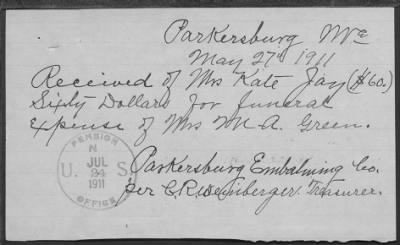 Parkersburg
May 27th 1911
Received of Mrs Kate Jay ($60.)
Sixty Dollars for funeral
Expense of Mrs M. A. Green.
Parkersburg Embalming Co.
per C. R. Treasurer.
PENSION
N
U. S.
JUL
24
1911
OFFICE